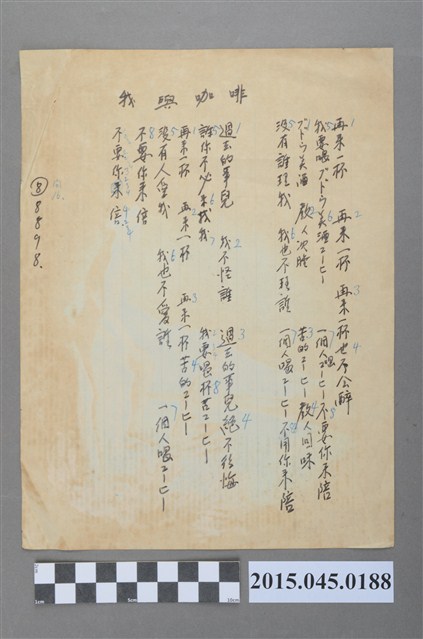 我與咖啡
再来一杯 再来一杯 再来一杯也不会醉
我要喝ブドウ美酒コーヒー 一個人喝コーヒー不要你来陪
ブドウ美酒 教人沈醉 苦的コーヒー教人回味
没有誰理我 我也不理誰 一個人喝コーヒー不用你来陪
過去的事兒 我不怪誰 過去的事兒絶不後悔
你不必来找我 我要喝杯苦コーヒー
再来一杯 再来一杯 再来一杯苦的コーヒー
没有人愛我 我也不愛誰 一個人喝コーヒー
不要你来信
不要你来信
⑧8898.
1cm 5cm 10cm
2015.045.0188